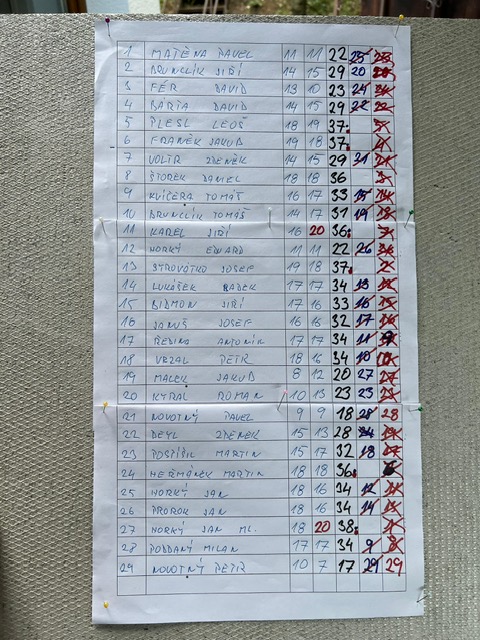 1 MATĚNA PAVEL 11 11 22 25
2 BRUNCLÍK JIŘÍ 14 15 29 20
3 FÉR DAVID 13 10 23 24
4 BÁRTA DAVID 14 15 29 22 22
5 PLESL LEOŠ 18 19 37
6 FRANĚK JAKUB 19 18 37
7 VOLTR ZDENĚK 14 15 29 21
8 ŠTOREK DANIEL 18 18 36
9 KVÍČERA TOMÁŠ 16 17 33 15
10 BRUNCLÍK TOMÁŠ 14 17 31 19 18
11 KAREL JIŘÍ 16 20 36
12 HORKÝ EDUARD 11 11 22 26
13 JOSEF 19 18 37
14 LUKÁŠEK RADEK 17 17 34 13
15 BIDMON JIŘÍ 17 16 33 16 15
16 JANUŠ JOSEF 16 16 32 17
17 ŘEDINA ANTONÍN 17 17 34 11
18 VRZAL PETR 18 16 34 10
19 MALEK JAKUB 8 12 20 27 27
20 KYTRAL ROMAN 10 13 23 23
21 NOVOTNÝ PAVEL 9 9 18 28 28
22 DEYL ZDENEK 15 13 28
23 POSPÍŠIL MARTIN 15 17 32 18 17
24 HEŘMÁNEK MARTIN 18 18 36
25 HORKÝ JAN 18 16 34 12
26 PROROK JAN 18 16 34 14
27 HORKÝ JAN ML. 18 20 38
28 PODDANÝ MILAN 17 17 34 9 8
29 NOVOTNÝ PETR 10 7 17 29 29